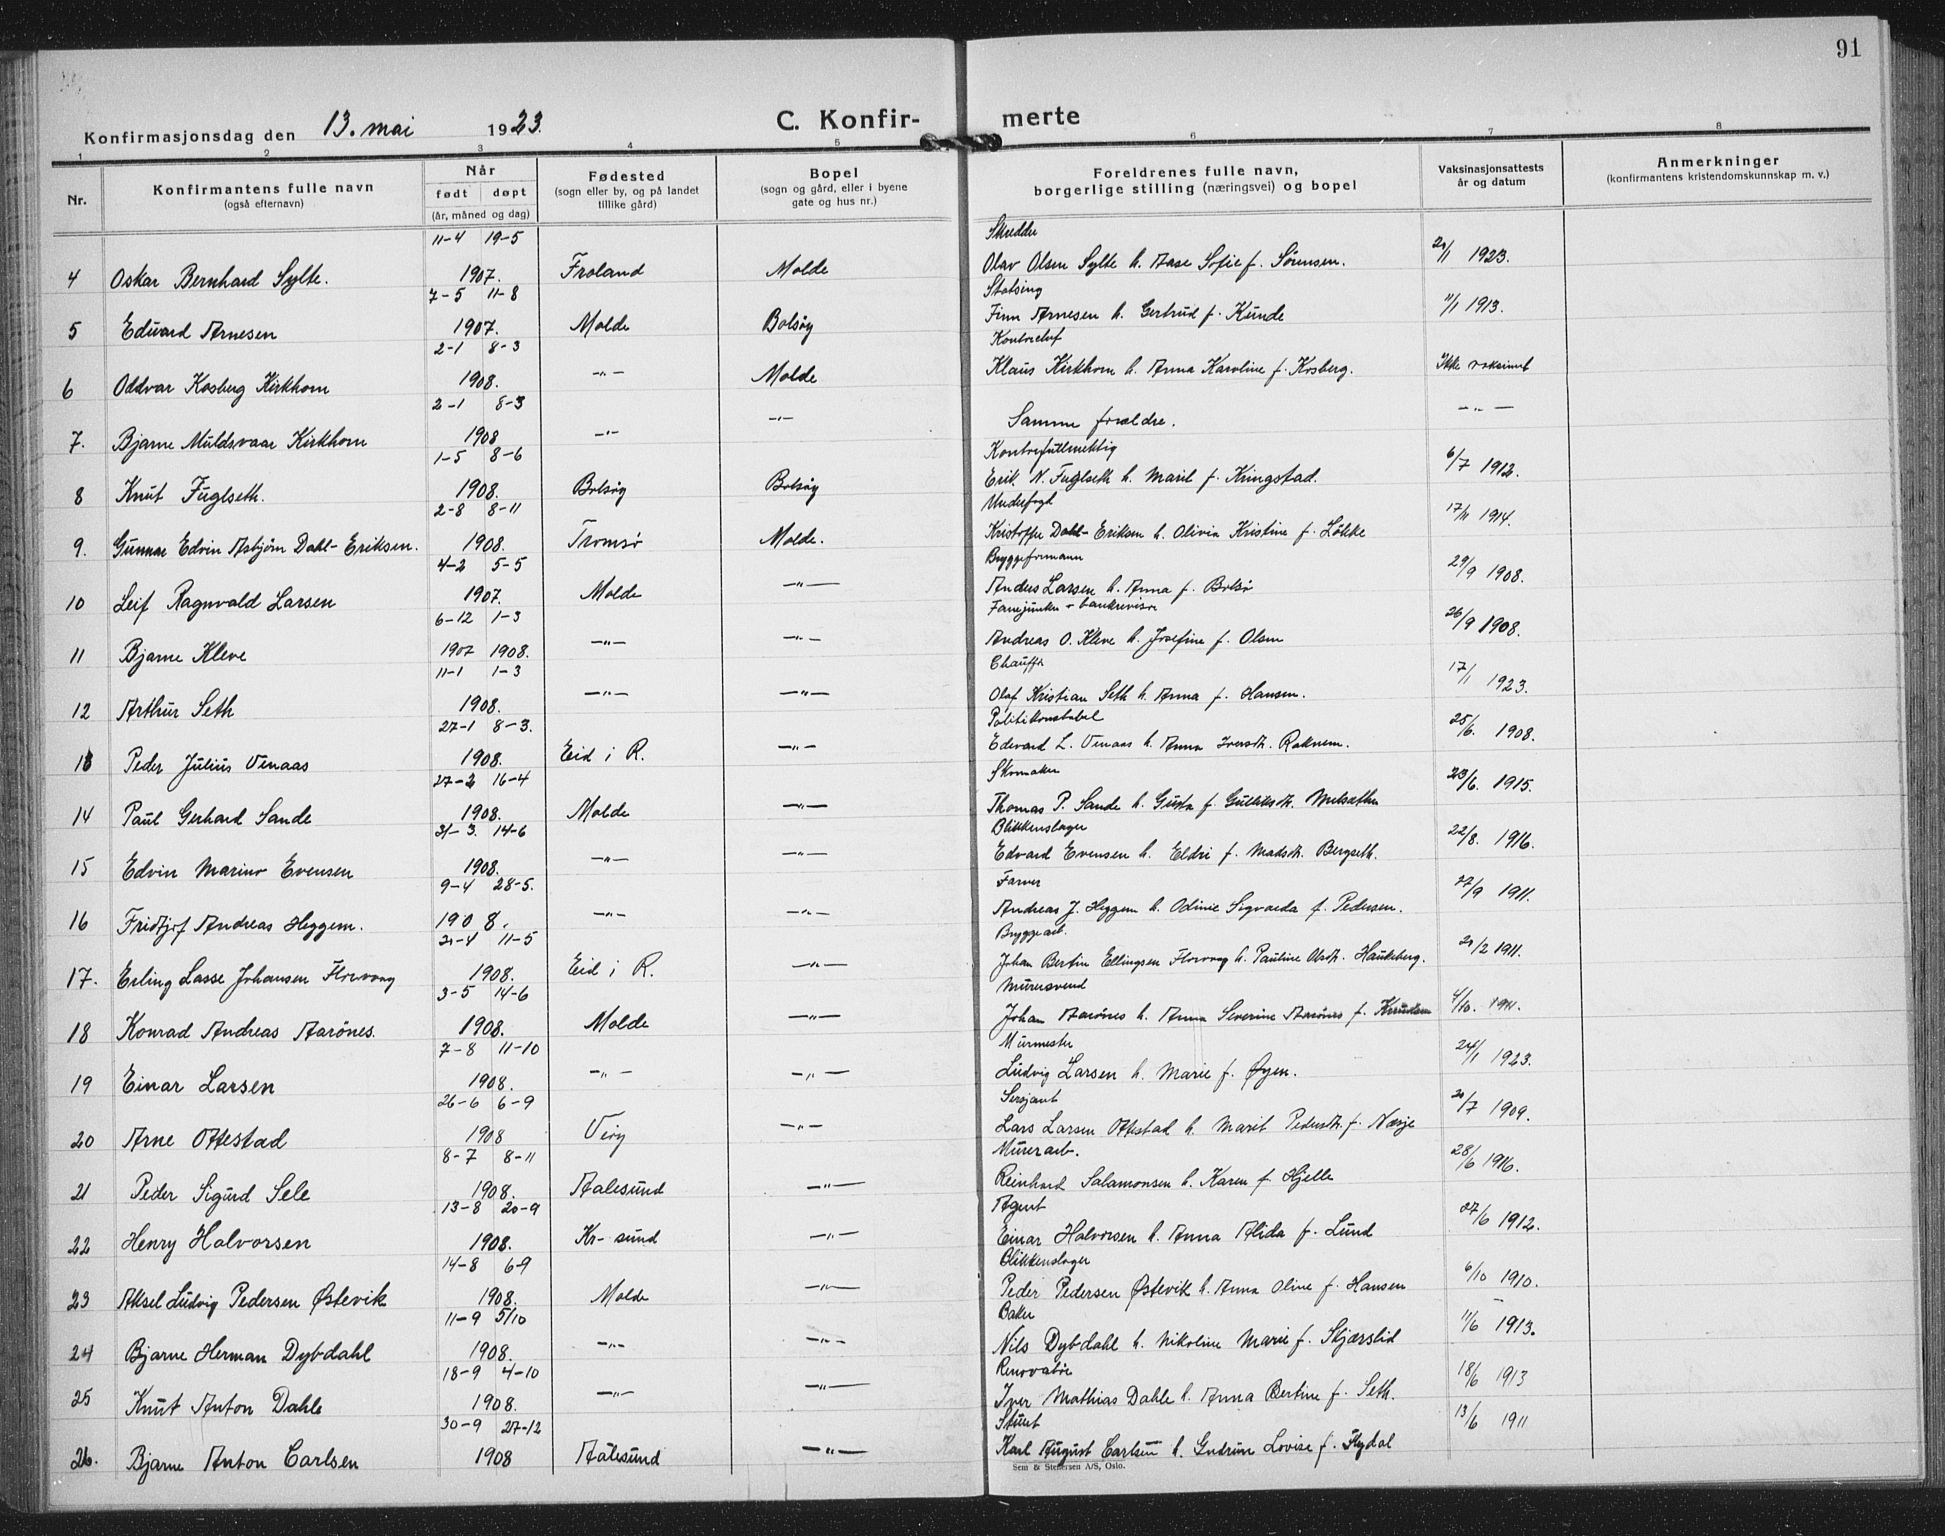 91
Konfirmasjonsdag den 13. mai 1923.
C. Konfir- merte
1 2 3 4 5 6 7 8
Nr.
Konfirmantens fulle navn
(også efternavn)
Når
født døpt
(år, måned og dag)
Fødested
(sogn eller by, og på landet
tillike gård)
Bopel
(sogn og gård, eller i byene
gate og hus nr.)
Foreldrenes fulle navn,
borgerlige stilling (næringsvei) og bopel
Vaksinasjonsattests
år og datum
Anmerkninger
(konfirmantens kristendomskunnskap m. v.)
11-4 19-5 Skredder
4 Oskar Bernhard Sylte. 1907. Froland Molde Olav Olsen Sylte h. Aase Sofie f. Sørensen. 1923.
7-5 11-8
5 Edvard Arnesen 1907. Molde Bolsøy Finn Arnesen h. Gertrud f. Kunde 11/1 1913.
2-1 8-3
6 Oddvar Kosberg Kirkhorn 1908. -"- Molde Klaus Kirkhorn h. Anna Karoline f. Kosberg. Ikke vaksinert
2-1 8-3
7. Bjarne Muldsvaar Kirkhorn 1908 -"- -"- Samme forældre. -"-
1-5 8-6 Kontorfuldmektig
8 Knut Fuglseth. 1908. Bolsøy Bolsøy Erik N. Fuglseth h. Marit f. Kringstad. 6/7 1912.
2-8 8-11 Underfogd
9. Gunnar Edvin Asbjørn Dahl-Eriksen. 1908. Tromsø Molde. Kristoffer Dahl-Eriksen h. Olivia Kristine f. Løkke 17/11 1914.
4-2 5-5 Bryggeformann
10 Leif Ragnvald Larsen 1907. Molde -"- Anders Larsen h. Anna f. Bolsø 29/9 1908.
6-12 1-3 Fanejunker + bankrevisor
11 Bjarne Kleve 1907 1908. -"- -"- Andreas O. Kleve h. Josefine f. Olsen 26/9 1908.
11-1 1-3 Chauffør
12 Arthur Seth 1908. -"- -"- Olaf Kristian Seth h. Anna f. Hansen. 17/1 1923.
27-1 8-3. Politikonstabel
13 Peder Julius Venaas 1908. Eid i R. -"- Edevard L. Venaas h. Anna Iversdt. Raknem. 25/6. 1908.
27-2 16-4 Skomaker
14 Paul Gerhard Sande 1908. Molde -"- Thomas P. Sande h. Gusta f. Gulliksdt. Melsæther 23/6. 1915.
31-3. 14-6 Blikkenslager
15 Edvin Marino Evensen 1908. -"- -"- Edvard Evensen h. Eldri f. Madsdt. Bergseth. 22/8. 1916.
9-4 28-5. Farver
16 Fridtjof Andreas Heggem. 1908. -"- -"- Andreas J. Heggem h. Odinie Sigvarda f. Pedersen. 27/9 1911.
21-4 11-5 Bryggearb.
17. Erling Lasse Johansen Florvaag 1908. Eid i R. -"- Johan Bertin Ellingsen Florvaag h. Pauline Olsdt. Haukeberg. 21/2 1911.
3-5 14-6 Murersvend
18 Konrad Andreas Aarönes. 1908. Molde -"- Johan Aarönes h. Anna Severine Aarönes f. Knudsen 4/10. 1911.
7-8 11-10 Murmester
19 Einar Larsen 1908. -"- -"- Ludvig Larsen h. Marie f. Øyen. 24/1 1923.
26-6 6-9 Sersjant
20 Arne Ottestad 1908 Veøy -"- Lars Larsen Ottestad h. Marit Pedersdt. f. Nesje 20/7 1909.
8-7 8-11 Murerarb.
21 Peder Sigurd Sele 1908. Aalesund -"- Reinhard Salamonsen h. Karen f. Hjelle 28/6 1916.
13-8 20-9 Agent
22 Henry Halvorsen 1908. Kr-sund -"- Einar Halvorsen h. Anna Alida f. Lund 27/6 1912.
14-8 6-9 Blikkenslager
23 Aksel Ludvig Pedersen Østevik 1908. Molde -"- Peder Pedersen Østevik h. Anna Oline f. Hansen 6/10 1910.
11-9 5/10 Baker
24 Bjarne Herman Dybdahl 1908. -"- -"- Nils Dybdahl h. Nikoline Marie f. Skjærslid 11/6 1913.
18-9 4-10 Renovatør
25 Knut Anton Dahle 1908. -"- -"- Iver Mathias Dahle h. Anna Bertine f. Seth. 18/6 1913
30-9 27-12
26. Bjarne Anton Carlsen 1908 Aalesund -"- Karl August Carlsen h. Gudrun Lovise f. Flydal 13/6 1911
Sem & Stenersen A/S, Oslo.